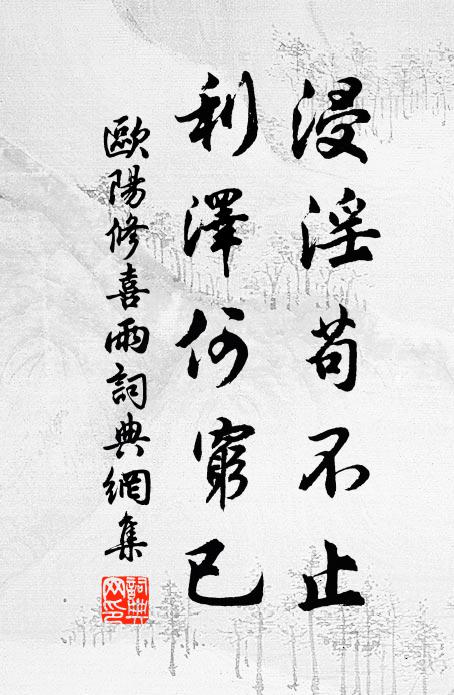 浸淫苟不止
利澤何窮已
歐陽修喜雨詞典網集
詞典